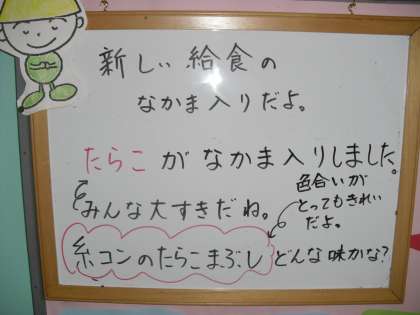 新しい給食の
なかま入りだよ。
たらこがなかま入りしました。
みんな大すきだね。
色合いが
とってもきれい
だよ。
糸コンのたらこまぶし どんな味かな?